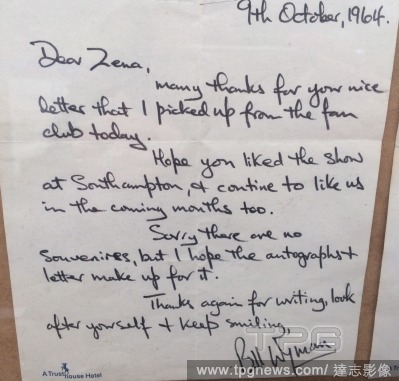 9th October, 1964.
Dear Zena,
many thanks for your nice
letter that I picked up from the fan
club today.
Hope you liked the show
at Southampton, & contine to like us
in the coming months too.
Sorry there are no
souvenires, but I hope the autographs &
letter make up for it.
Thanks again for writing, look
after yourself & keep smiling,
Bill Wyman
A Trusthouse Hotel
TPG
www.tpgnews.com/ 達志影像